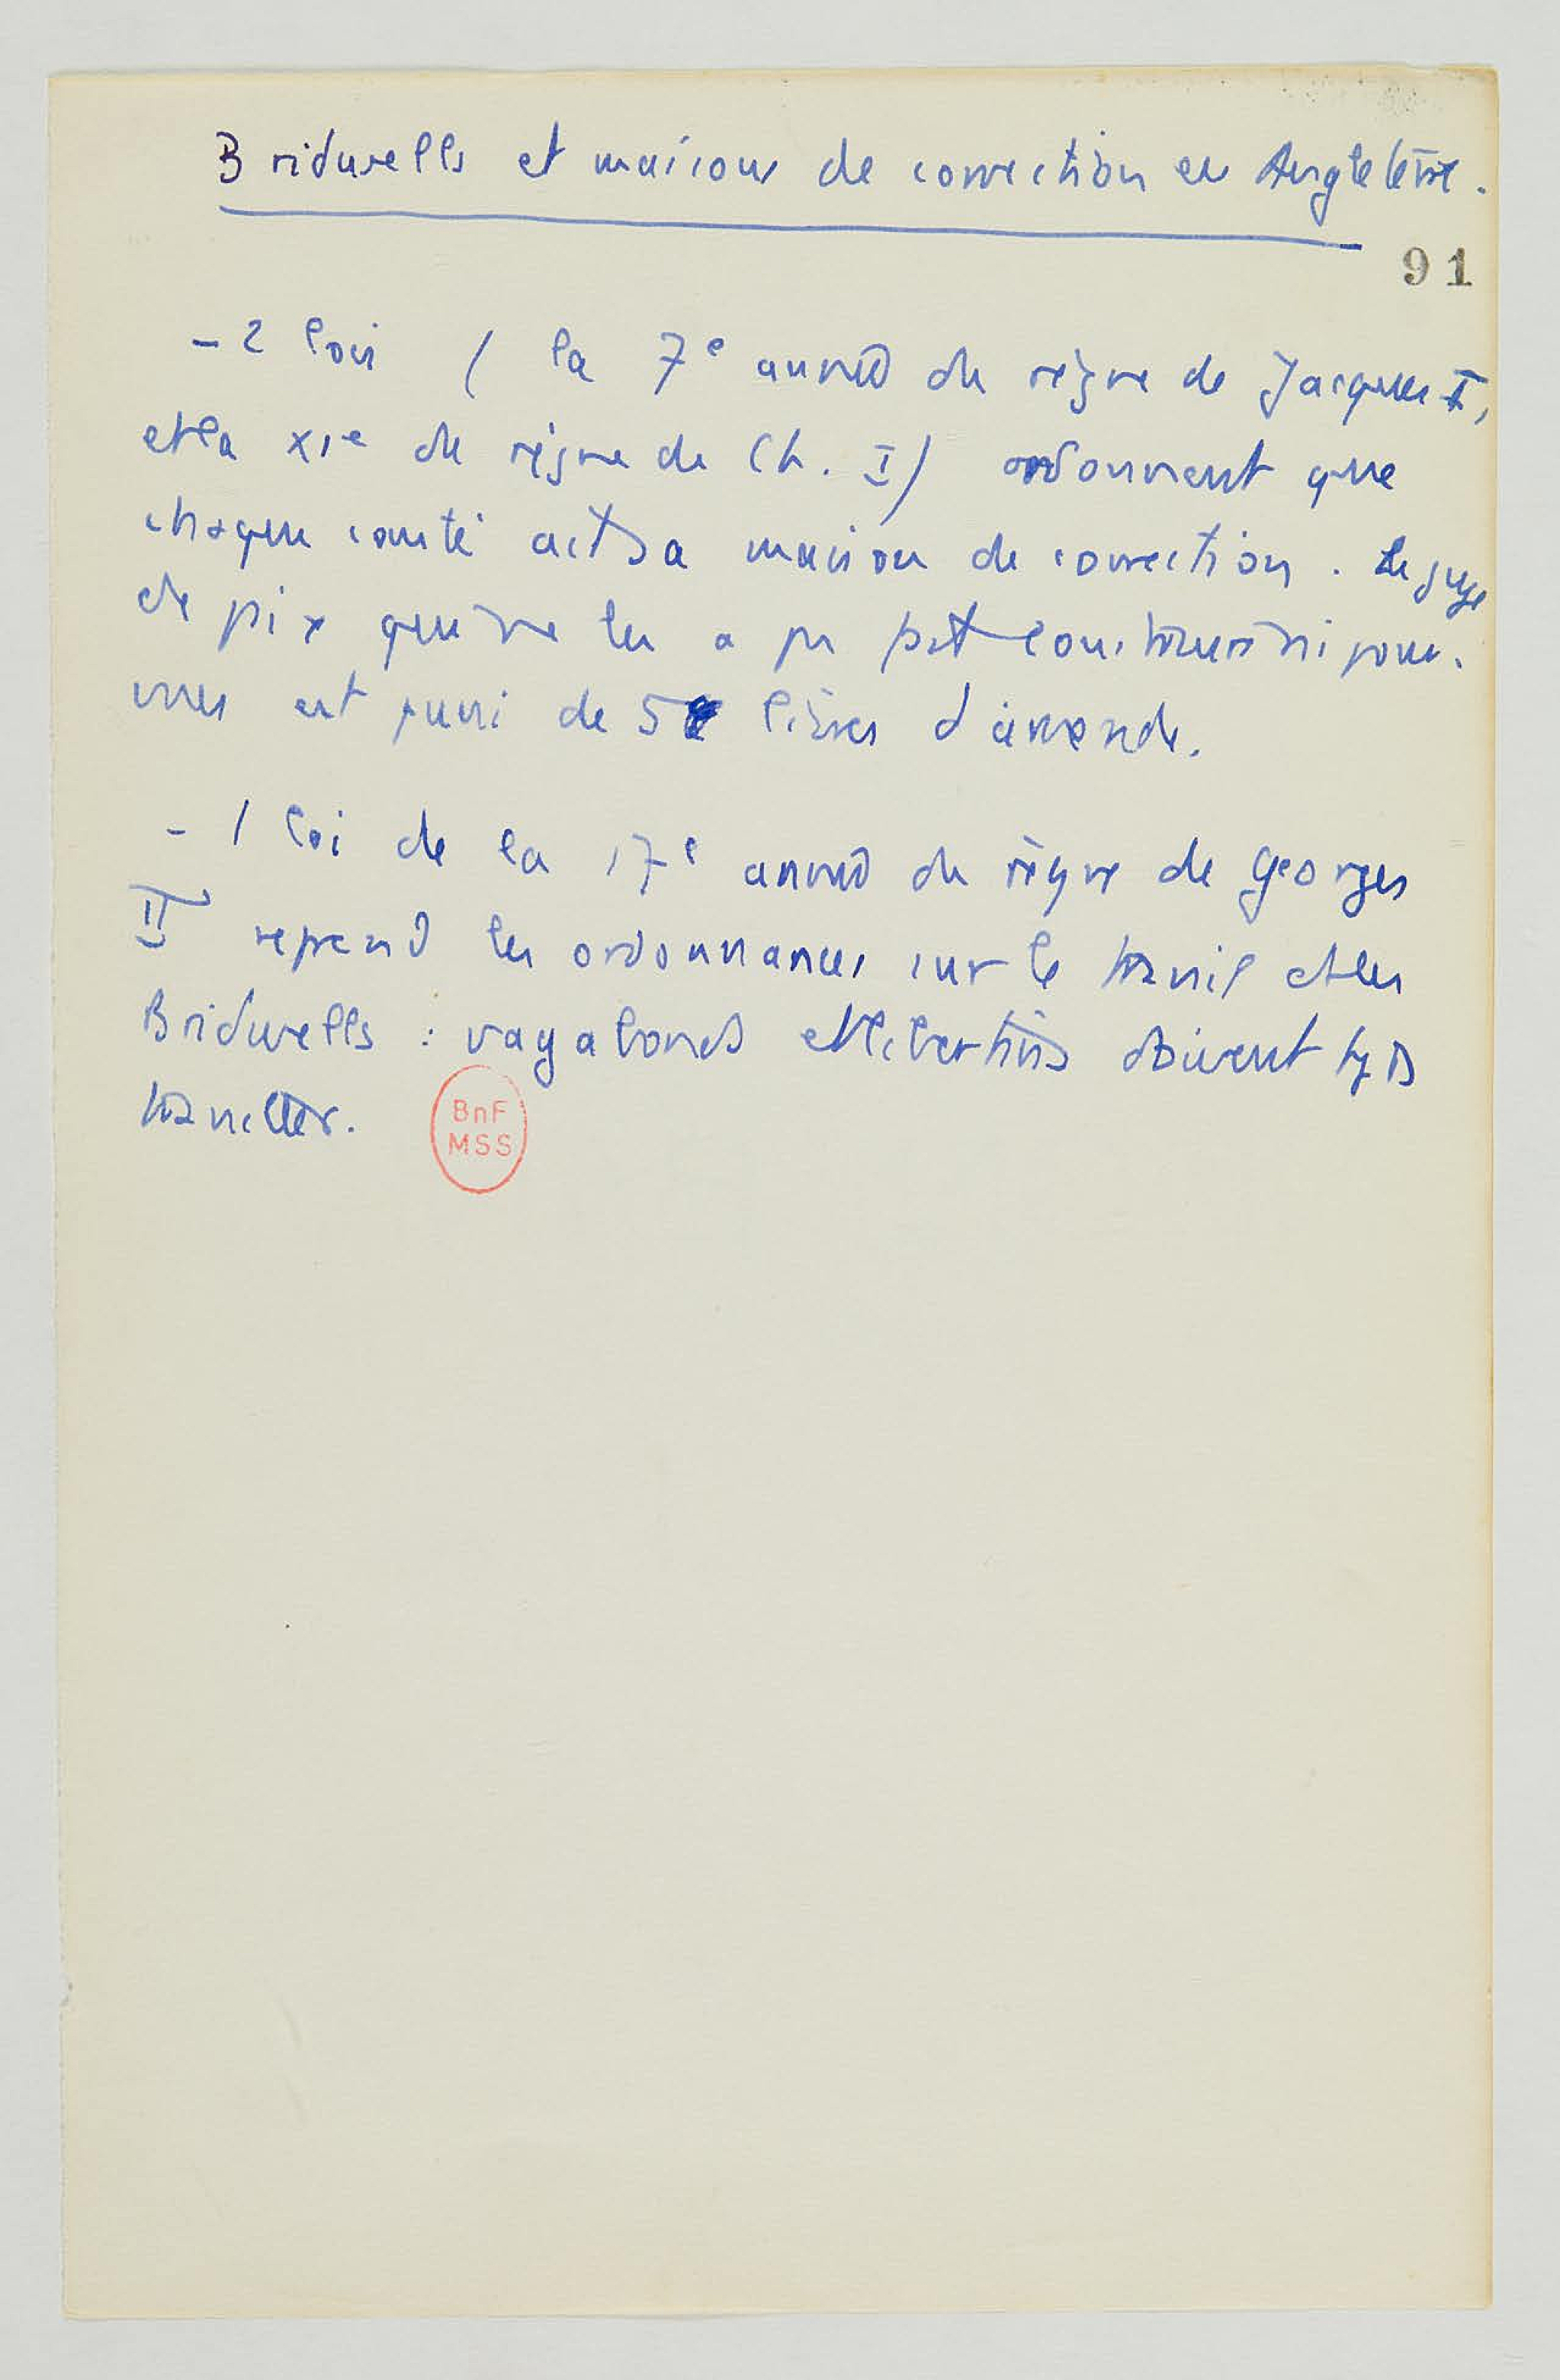 Bridwells et maisons de correction en Angleterre.
91
- 2 lois ( la 7e année du règne de Jacques I,
et la XIe du règne de Ch. I) ordonnent que
chaque comté ait sa maison de correction. Le juge
de paix qui ne les a pu fait construire ni pour-
vues est puni de 5 livres d'amende.
- 1 loi de la 17e année du règne de Georges
II reprend les ordonnances sur le travail et les
Bridwells : vagabonds et libertins doivent
travailler.
BnF
MSS